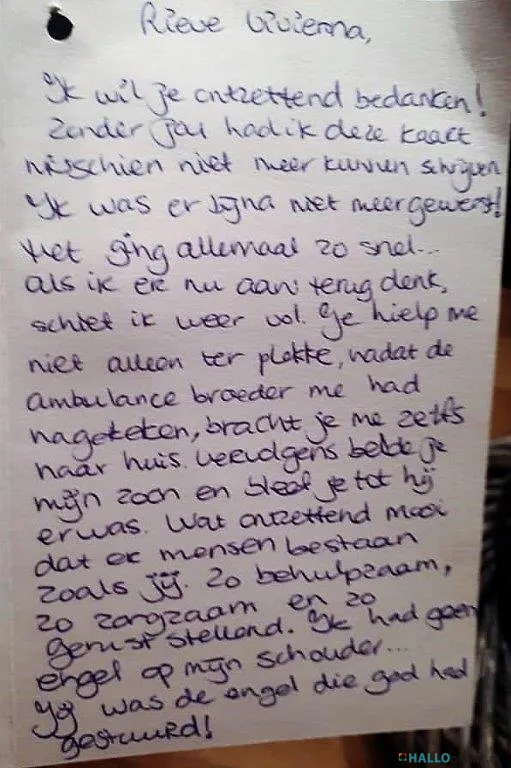 Lieve Vivienna,
Ik wil je ontzettend bedanken!
Zonder jou had ik deze kaart
misschien niet meer kunnen schrijven
Ik was er bijna niet meer geweest!
Het ging allemaal zo snel...
als ik er nu aan terug denk,
schiet ik weer vol. Je hielp me
niet alleen ter plekke, nadat de
ambulance broeder me had
nagekeken, bracht je me zelfs
naar huis. Vervolgens belde je
mijn zoon en bleef je tot hij
er was. Wat ontzettend mooi
dat er mensen bestaan
zoals jij. Zo behulpzaam,
zo zorgzaam en zo
gerust stellend. Ik had geen
engel op mijn schouder...
Jij was de engel die god had
gestuurd!
HALLO